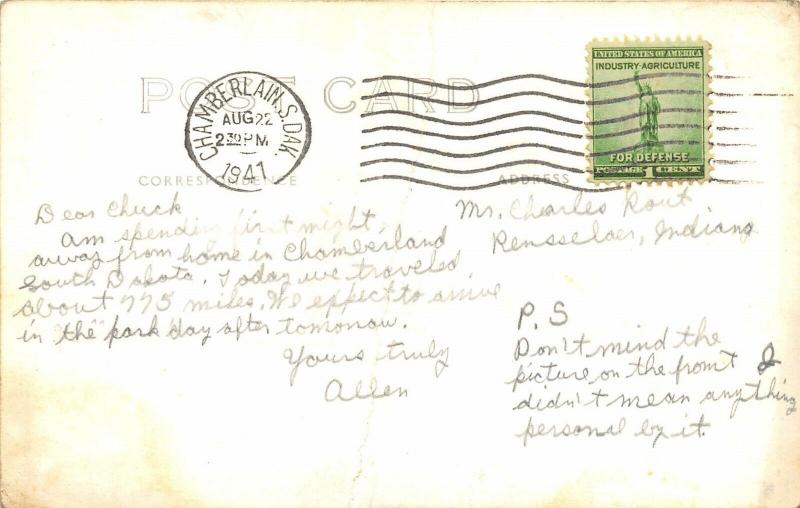 POST CARD
CHAMBERLAIN, S. DAK.
AUG 22
2 30 PM
1941
UNITED STATES OF AMERICA
INDUSTRY-AGRICULTURE
FOR DEFENSE
POSTAGE 1 CENT
CORRESPONDENCE
ADDRESS
Dear Chuck
Am spending first night,
away from home in Chamberland
South Dakota. Today we traveled
about 775 miles. We expect to arrive
in the "park" day after tomorrow.
Yours truly
Allen
Mr. Charles Rout
Rensselaer, Indiana
P.S
Don't mind the
picture on the front I
didn't mean anything
personal by it.